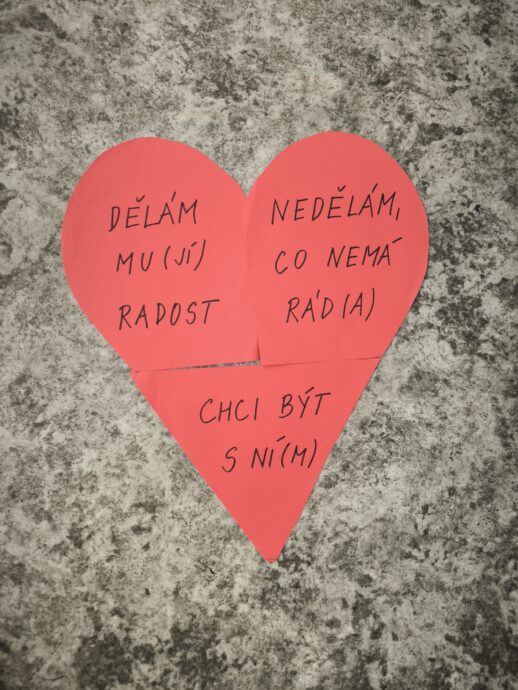 DĚLÁM
MU(JÍ)
RADOST
NEDĚLÁM,
CO NEMÁ
RÁD(A)
CHCI BÝT
S NÍ(M)